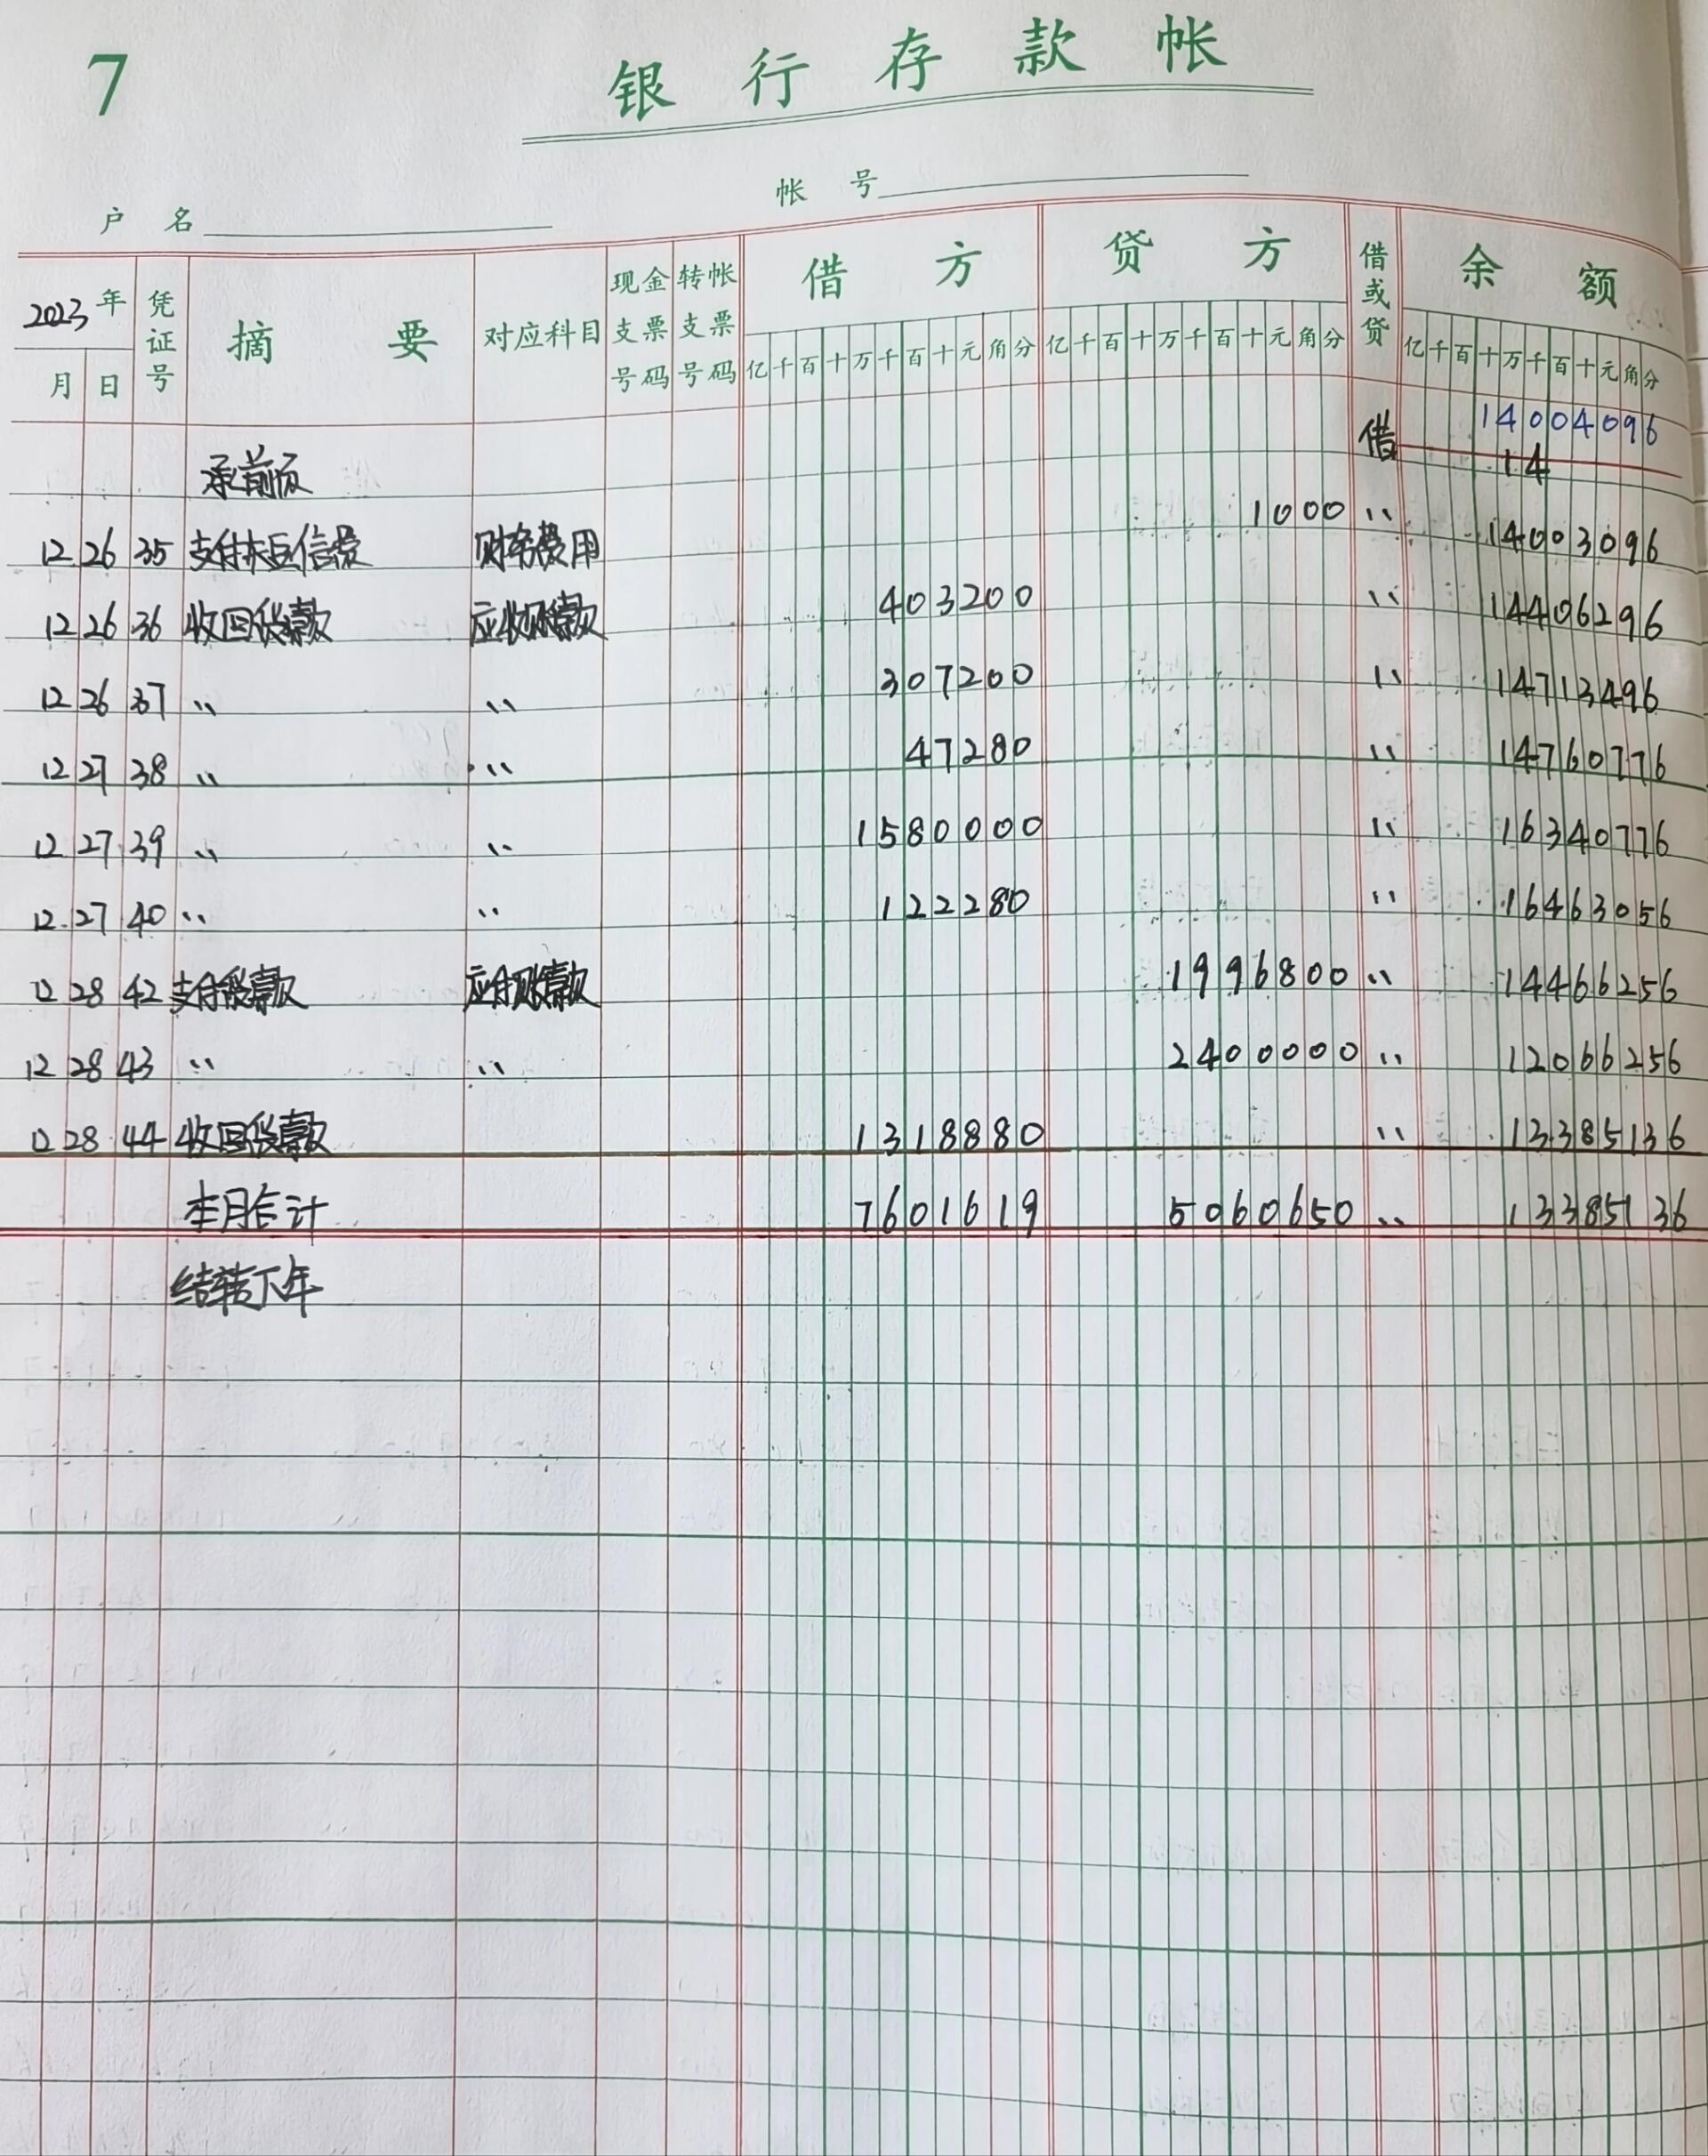 7
银行存款帐
帐号
户名
2023年 凭证号 摘要 对应科目 现金支票号码 转帐支票号码 借方 贷方 借或贷 余额
月 日 亿千百十万千百十元角分 亿千百十万千百十元角分 亿千百十万千百十元角分
14004096
承前页 借 14
12 26 35 支付 信费 财务费用 1000 〃 14003096
12 26 36 收回货款 应收账款 403200 〃 14406296
12 26 37 〃 〃 307200 〃 14713496
12 27 38 〃 〃 47280 〃 14760776
12 27 39 〃 〃 1580000 〃 16340776
12 27 40 〃 〃 122280 〃 16463056
12 28 42 支付货款 应付账款 1996800 〃 14466256
12 28 43 〃 〃 2400000 〃 12066256
12 28 44 收回货款 1318880 〃 13385136
本月合计 7601619 5060650 〃 13385136
结转下年